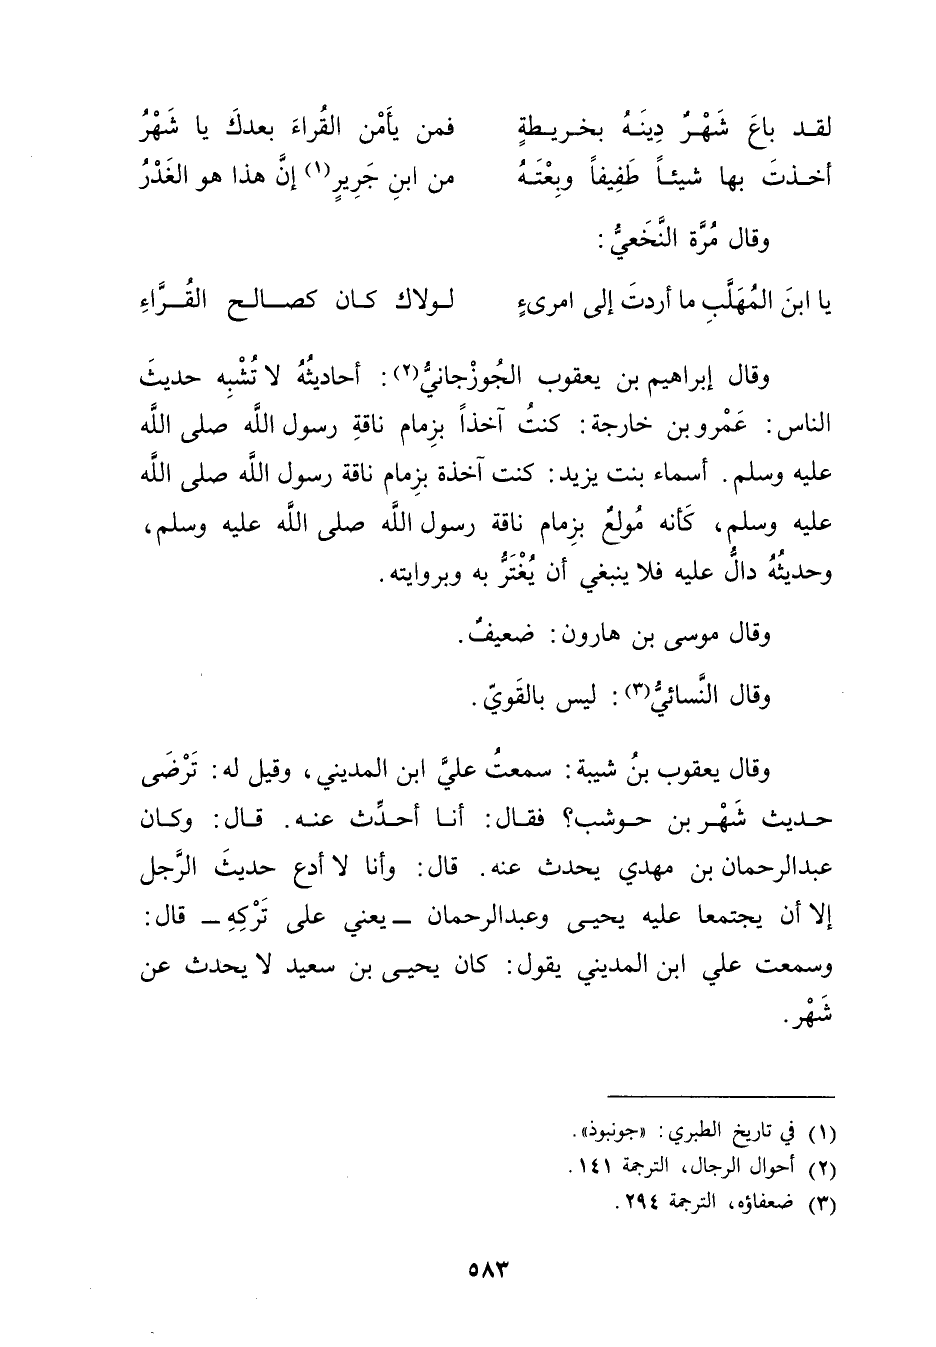 لقد باعَ شَهْرٌ دِينَهُ بخريطةٍ فمن يأمْن القُراءَ بعدكَ يا شَهْرُ
أخذتَ بها شيئاً طَفِيفاً وبِعْتَهُ من ابنِ جَرِيرٍ(١) إنَّ هذا هو الغَدْرُ
وقال مُرَّة النَّخَعيُّ :
يا ابنَ المُهَلَّبِ ما أردتَ إلى امرىءٍ لولاك كان كصالح القُرَّاءِ
وقال إبراهيم بن يعقوب الجُوزْجانيُّ(٢) : أحاديثُهُ لا تُشْبِه حديثَ
الناس : عَمْرو بن خارجة : كنتُ آخذاً بزِمام ناقةِ رسول اللَّه صلى اللَّه
عليه وسلم . أسماء بنت يزيد : كنت آخذة بزِمام ناقة رسول اللَّه صلى اللَّه
عليه وسلم، كَأنه مُولعٌ بزِمام ناقة رسول اللَّه صلى اللَّه عليه وسلم،
وحديثُهُ دالٌّ عليه فلا ينبغي أن يُغْتَرَّ به وبروايته .
وقال موسى بن هارون : ضعيفٌ .
وقال النَّسائيُّ(٣) : ليس بالقَويّ .
وقال يعقوب بنُ شيبة : سمعتُ عليَّ ابن المديني، وقيل له : تَرْضَى
حديث شَهْر بن حوشب؟ فقال : أنا أحدِّث عنه . قال : وكان
عبدالرحمان بن مهدي يحدث عنه . قال : وأنا لا أدع حديثَ الرَّجل
إلا أن يجتمعا عليه يحيى وعبدالرحمان ــ يعني على تَرْكِهِ ــ قال :
وسمعت علي ابن المديني يقول : كان يحيى بن سعيد لا يحدث عن
شَهْر .
(١) في تاريخ الطبري : «جونبوذ» .
(٢) أحوال الرجال، الترجمة ١٤١ .
(٣) ضعفاؤه، الترجمة ٢٩٤ .
٥٨٣